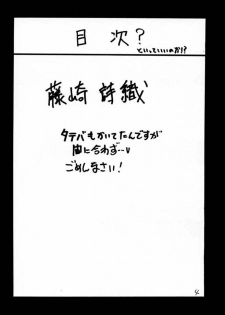 目次?
といっていいのか!?
藤崎 詩織
タテバもかいてたんですが
間に合わず…
ごめしなさい!